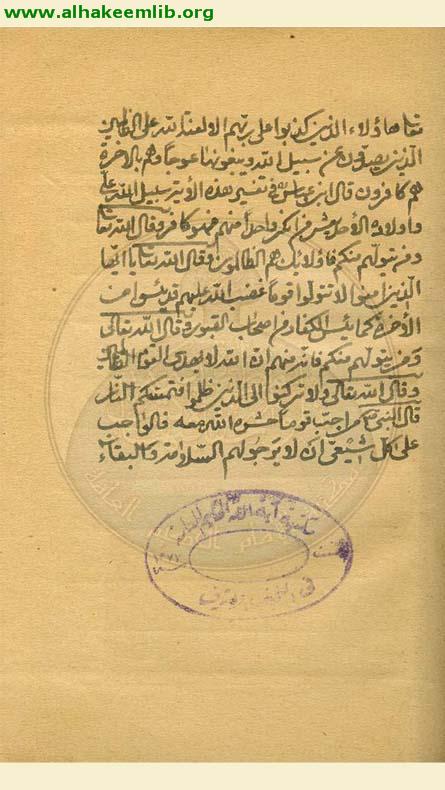 www.alhakeemlib.org
هؤلاء الذين كذبوا على ربهم الا لعنة الله على الظالمين
الذين يصدون عن سبيل الله ويبغونها عوجا وهم بالاخرة
هم كافرون قال ابن عباس في تفسير هذه الآية سبيل الله علي
واولاده الأحد عشر فمن انكر واحدا منهم فهو كافر وقال الله تعا
ومن يتولهم منكم فاولئك هم الظالمون وقال الله تعا يا ايها
الذين امنوا لا تتولوا قوما غضب الله عليهم قد يئسوا من
الأخرة كما يئس الكفار من اصحاب القبور وقال الله تعالى
ومن يتولهم منكم فانه منهم ان الله لا يهدي القوم الظالمين
وقال الله تعالى ولا تركنوا الى الذين ظلموا فتمسكم النار
قال النبي من احب قوما حشره الله معه فالواجب
على كل شيعي ان لا يرجو لهم السلامة والبقاء
مكتبة آية الله الحكيم العامة
في النجف الاشرف